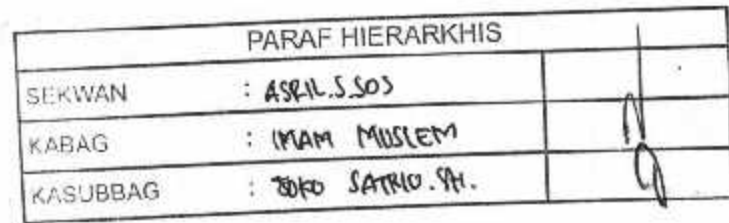 PARAF HIERARKHIS
SEKWAN : ASRIL.S.SOS
KABAG : IMAM MUSLEM
KASUBBAG : JOKO SATRIO.SH.